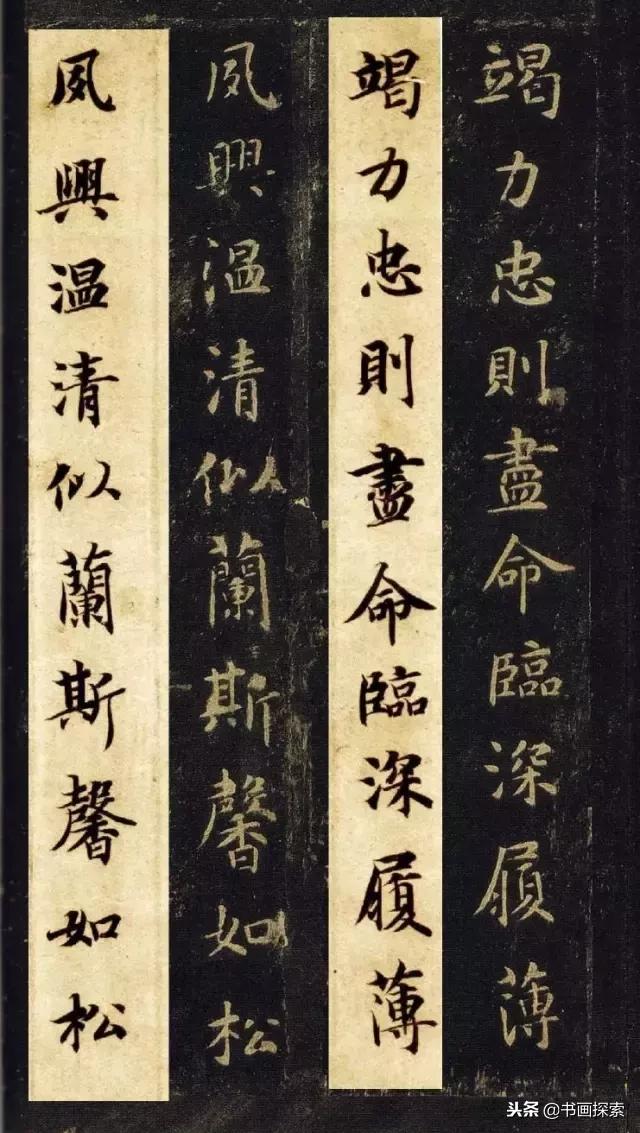 竭力忠則盡命臨深履薄
竭力忠則盡命臨深履薄
夙興温清似蘭斯馨如松
夙興温清似蘭斯馨如松
头条 @书画探索